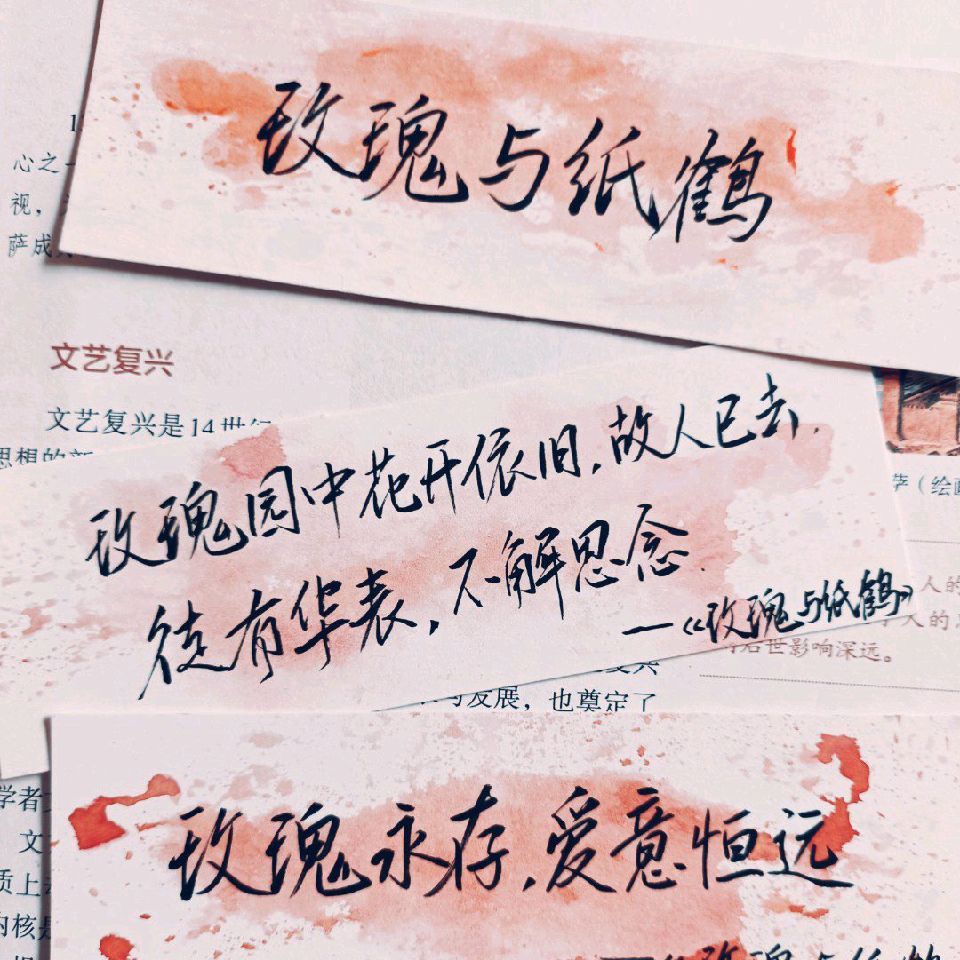 玫瑰与纸鹤
心之一
视，
萨成
文艺复兴
文艺复兴是14世纪
思想的新
玫瑰园中花开依旧，故人已去，
徒有华表，不解思念．
—《玫瑰与纸鹤》
萨（绘画
人的
人的思
后世影响深远。
与发展，也奠定了
玫瑰永存，爱意恒远
学者
文
质上
内核是
—《玫瑰与纸鹤